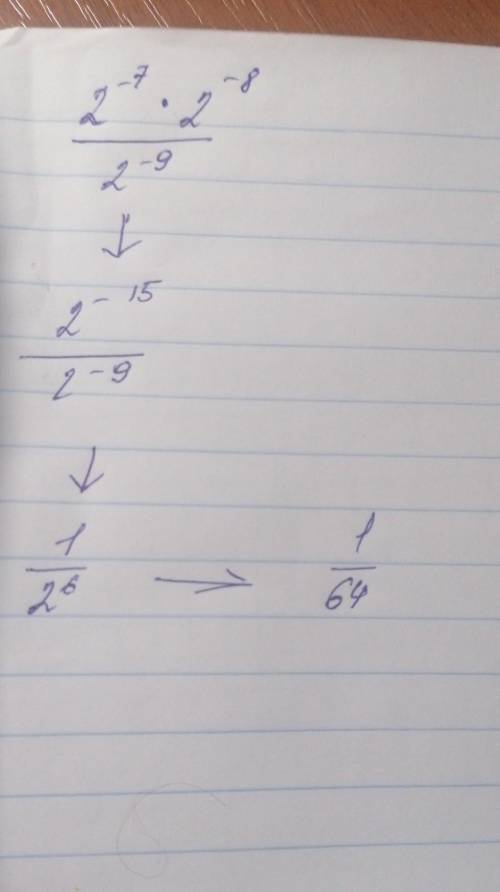 2^-7 · 2^-8
2^-9
↓
2^-15
2^-9
↓
1
2^6 → 1
64